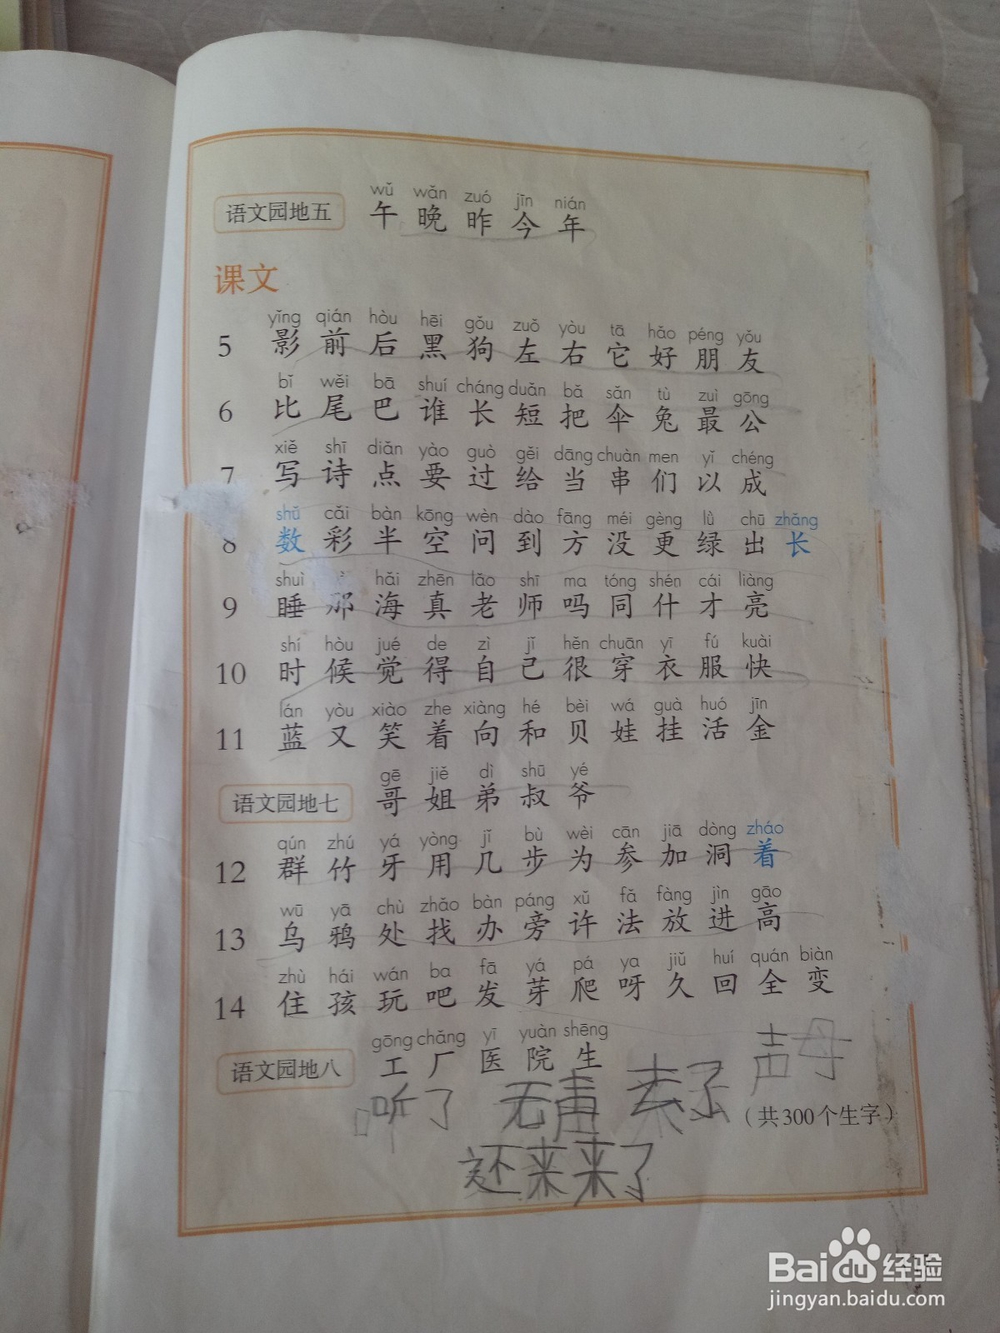 wǔ wǎn zuó jīn nián
语文园地五 午 晚 昨 今 年
课文
yǐng qián hòu hēi gǒu zuǒ yòu tā hǎo péng yǒu
5 影 前 后 黑 狗 左 右 它 好 朋 友
bǐ wěi bā shuí cháng duǎn bǎ sǎn tù zuì gōng
6 比 尾 巴 谁 长 短 把 伞 兔 最 公
xiě shī diǎn yào guò gěi dāng chuàn men yǐ chéng
7 写 诗 点 要 过 给 当 串 们 以 成
shǔ cǎi bàn kōng wèn dào fāng méi gèng lǜ chū zhǎng
8 数 彩 半 空 问 到 方 没 更 绿 出 长
shuì hǎi zhēn lǎo shī ma tóng shén cái liàng
9 睡 那 海 真 老 师 吗 同 什 才 亮
shí hòu jué de zì jǐ hěn chuān yī fú kuài
10 时 候 觉 得 自 己 很 穿 衣 服 快
lán yòu xiào zhe xiàng hé bèi wá guà huó jīn
11 蓝 又 笑 着 向 和 贝 娃 挂 活 金
gē jiě dì shū yé
语文园地七 哥 姐 弟 叔 爷
qún zhú yá yòng jǐ bù wèi cān jiā dòng zháo
12 群 竹 牙 用 几 步 为 参 加 洞 着
wū yā chù zhǎo bàn páng xǔ fǎ fàng jìn gāo
13 乌 鸦 处 找 办 旁 许 法 放 进 高
zhù hái wán ba fā yá pá ya jiǔ huí quán biàn
14 住 孩 玩 吧 发 芽 爬 呀 久 回 全 变
gōng chǎng yī yuàn shēng
语文园地八 工 厂 医 院 生
声母
听了 无声 去了
(共300个生字)
还来来了
Baidu 经验
jingyan.baidu.com